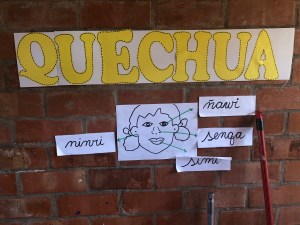 QUECHUA
ñawi
ninri
senqa
simi